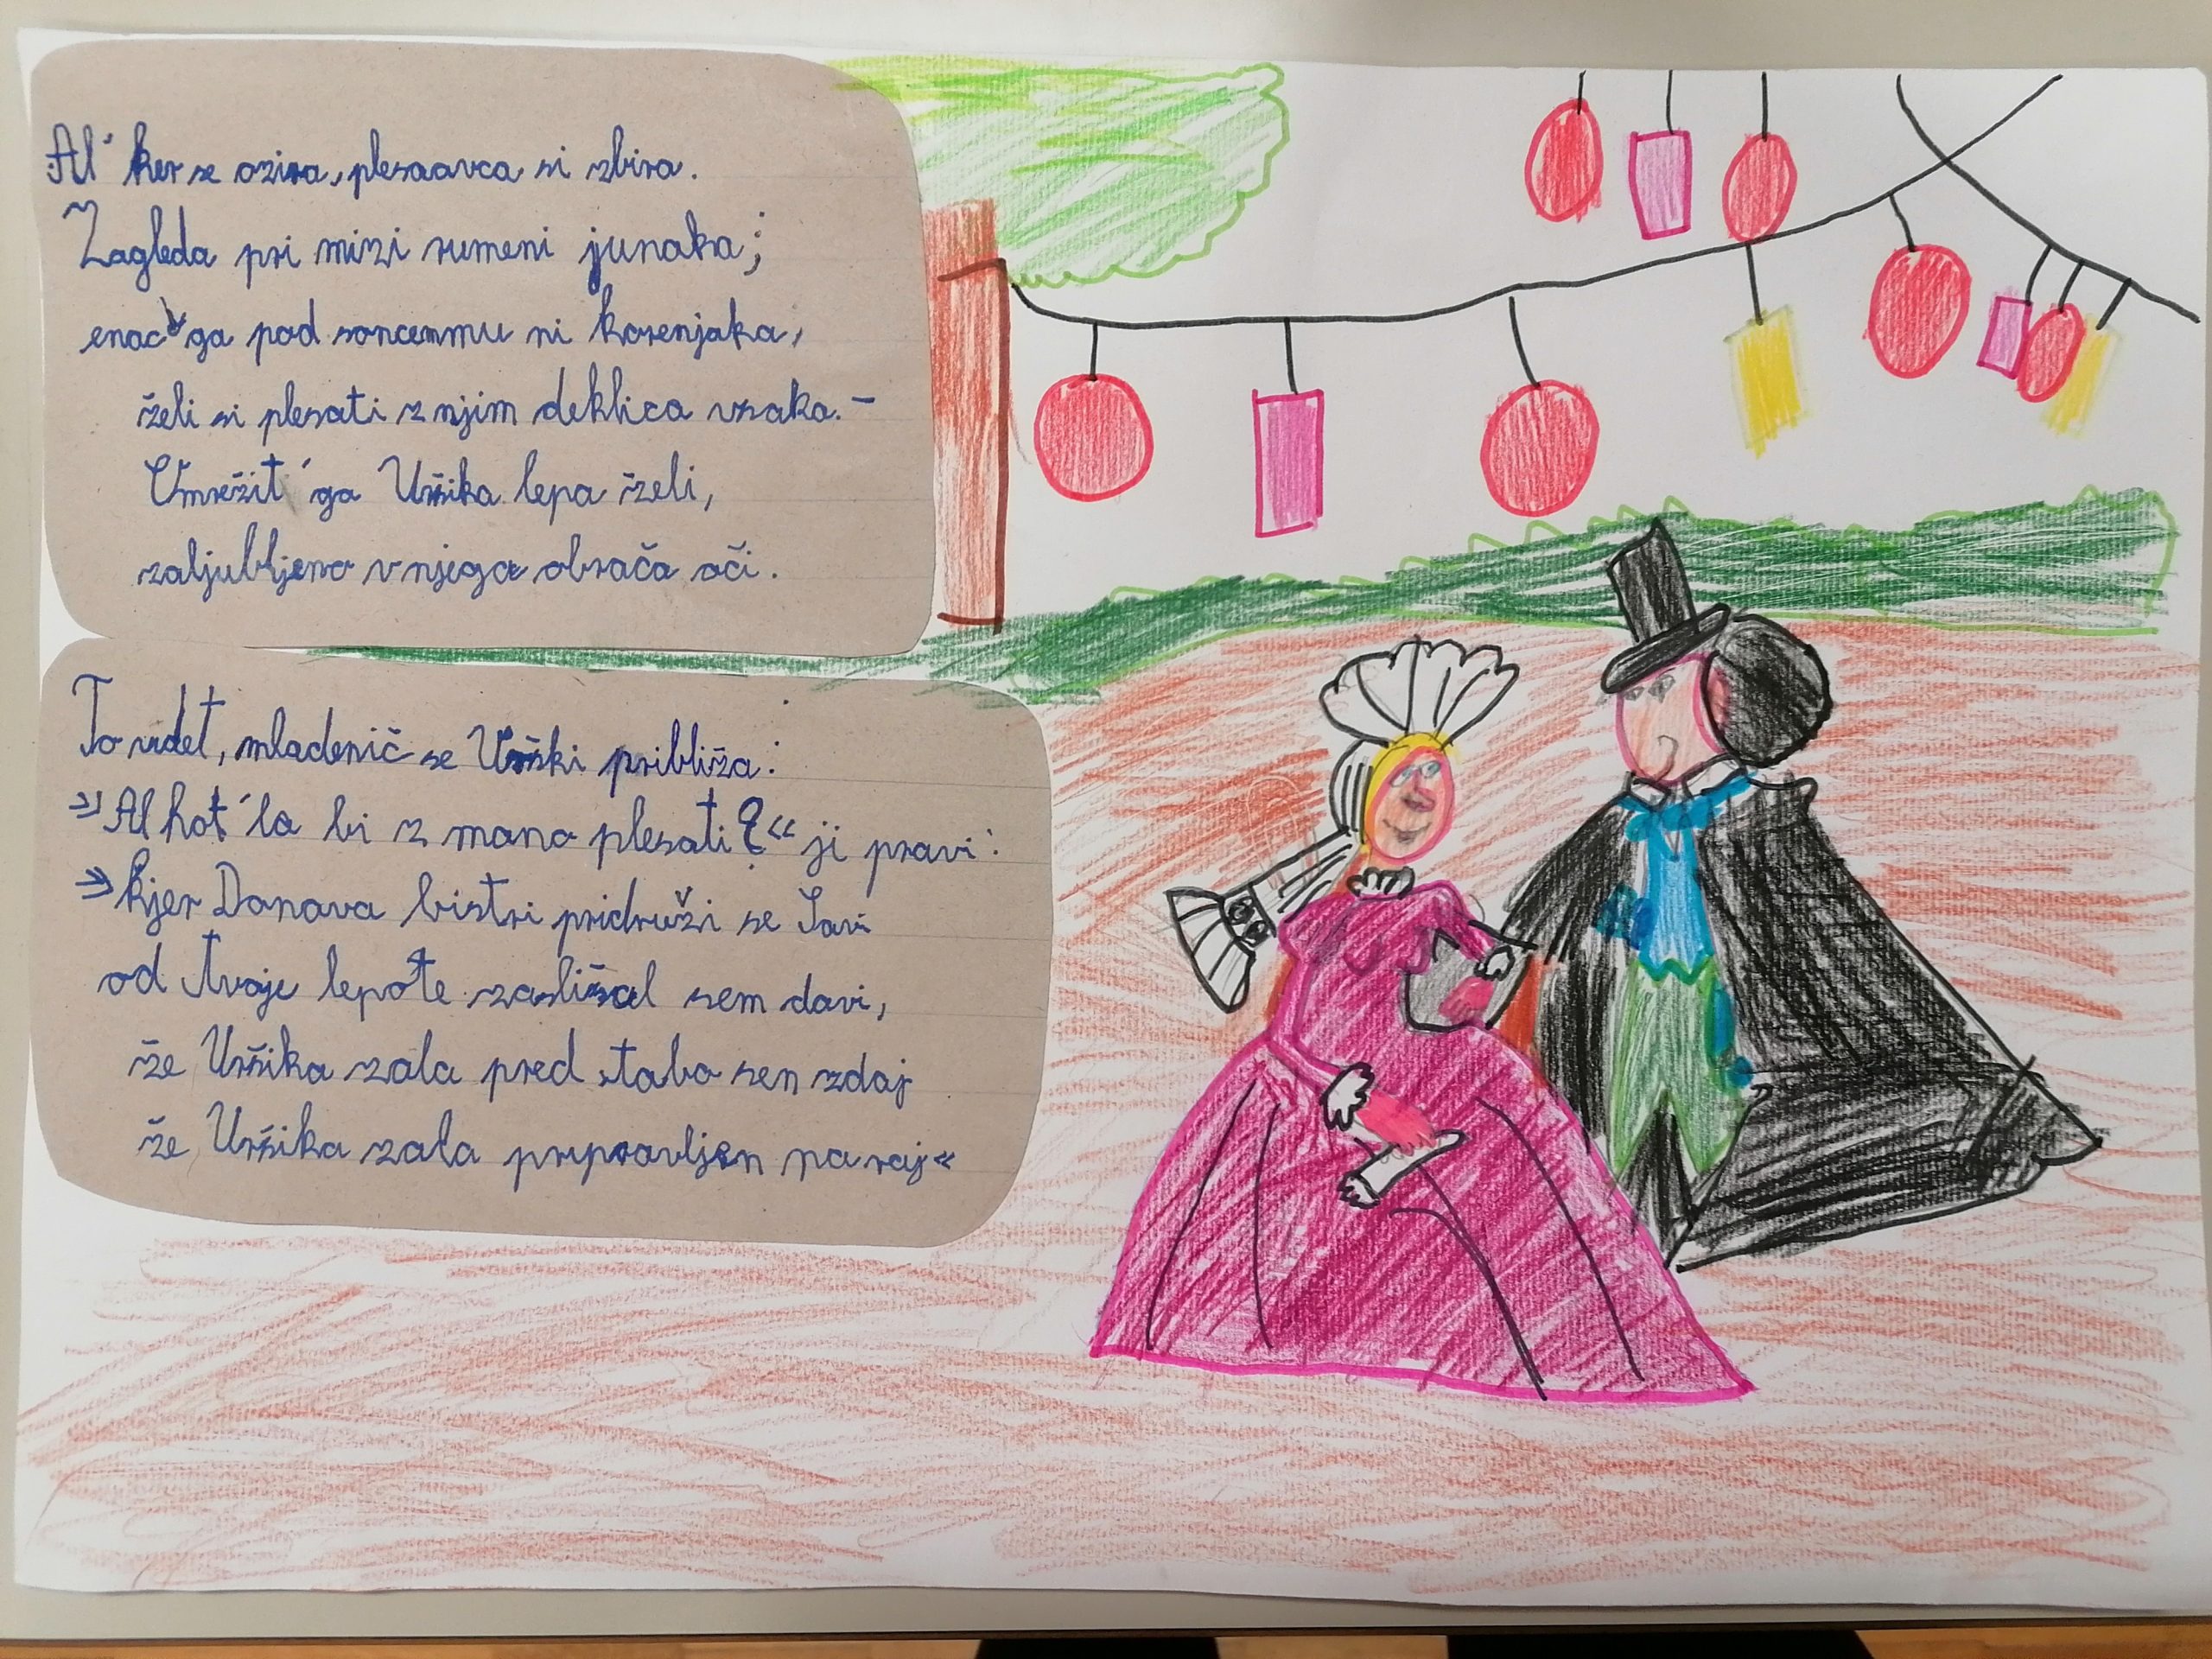 Al' ker se ozira, plesaavca si zbira.
Zagleda pri mizi rumeni junaka;
enac'ga pod soncemmu ni korenjaka,
želi si plesati z njim deklica vsaka. -
Umrežit' ga Uršika lepa želi,
zaljubljeno v njega obrača oči.
To videt, mladenič se Urški približa:
»Al hot'la bi z mano plesati?« ji pravi:
»kjer Donava bistri pridruži se Savi
od tvoje lepote zaslišal sem davi,
že Uršika zala pred tabo sen zdaj
že Uršika zala pripravljen na raj«